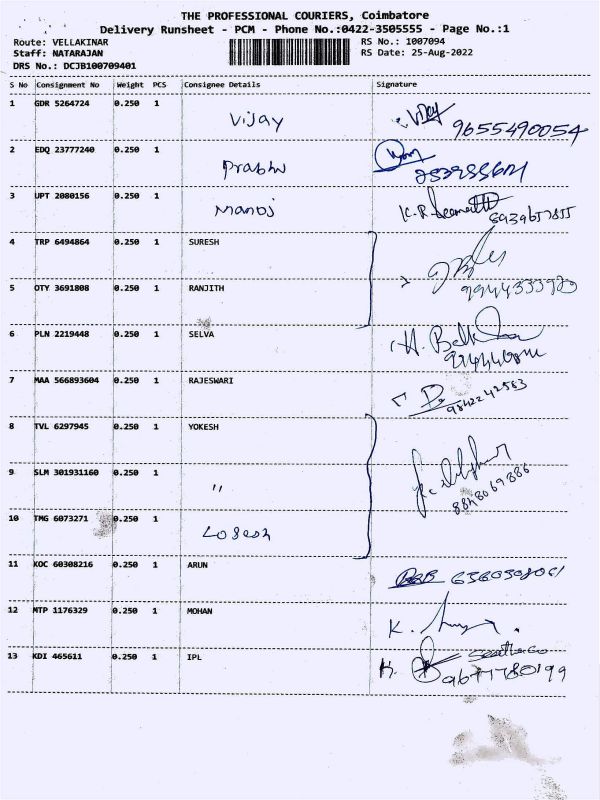 THE PROFESSIONAL COURIERS, Coimbatore
Delivery Runsheet - PCM - Phone No.:0422-3505555 - Page No.:1
Route: VELLAKINAR RS No.: 1007094
Staff: NATARAJAN RS Date: 25-Aug-2022
DRS No.: DCJB100709401
S No Consignment No Weight PCS Consignee Details Signature
1 GDR 5264724 0.250 1 Vijay Vijay 9655490054
2 EDQ 23777240 0.250 1 Prabhu
3 UPT 2080156 0.250 1 Manoj K.R.
4 TRP 6494864 0.250 1 SURESH
5 OTY 3691808 0.250 1 RANJITH
6 PLN 2219448 0.250 1 SELVA H.
7 MAA 566893604 0.250 1 RAJESWARI 9842242563
8 TVL 6297945 0.250 1 YOKESH
9 SLM 301931160 0.250 1 〃 8848069886
10 TMG 6073271 0.250 1
11 KOC 60308216 0.250 1 ARUN
12 MTP 1176329 0.250 1 MOHAN K.
13 KDI 465611 0.250 1 IPL K. 9677780199